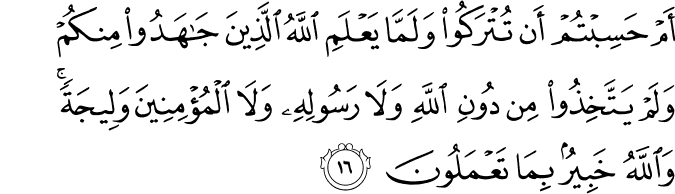 أَمۡ حَسِبۡتُمۡ أَن تُتۡرَكُواْ وَلَمَّا يَعۡلَمِ ٱللَّهُ ٱلَّذِينَ جَٰهَدُواْ مِنكُمۡ
وَلَمۡ يَتَّخِذُواْ مِن دُونِ ٱللَّهِ وَلَا رَسُولِهِۦ وَلَا ٱلۡمُؤۡمِنِينَ وَلِيجَةٗۚ
وَٱللَّهُ خَبِيرُۢ بِمَا تَعۡمَلُونَ ١٦